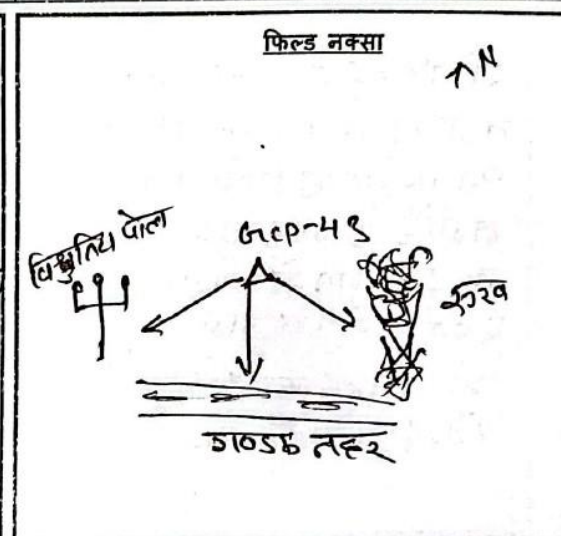 फिल्ड नक्सा
N
विधुतिय पोल
GCP-43
रुख
गण्डक नहर